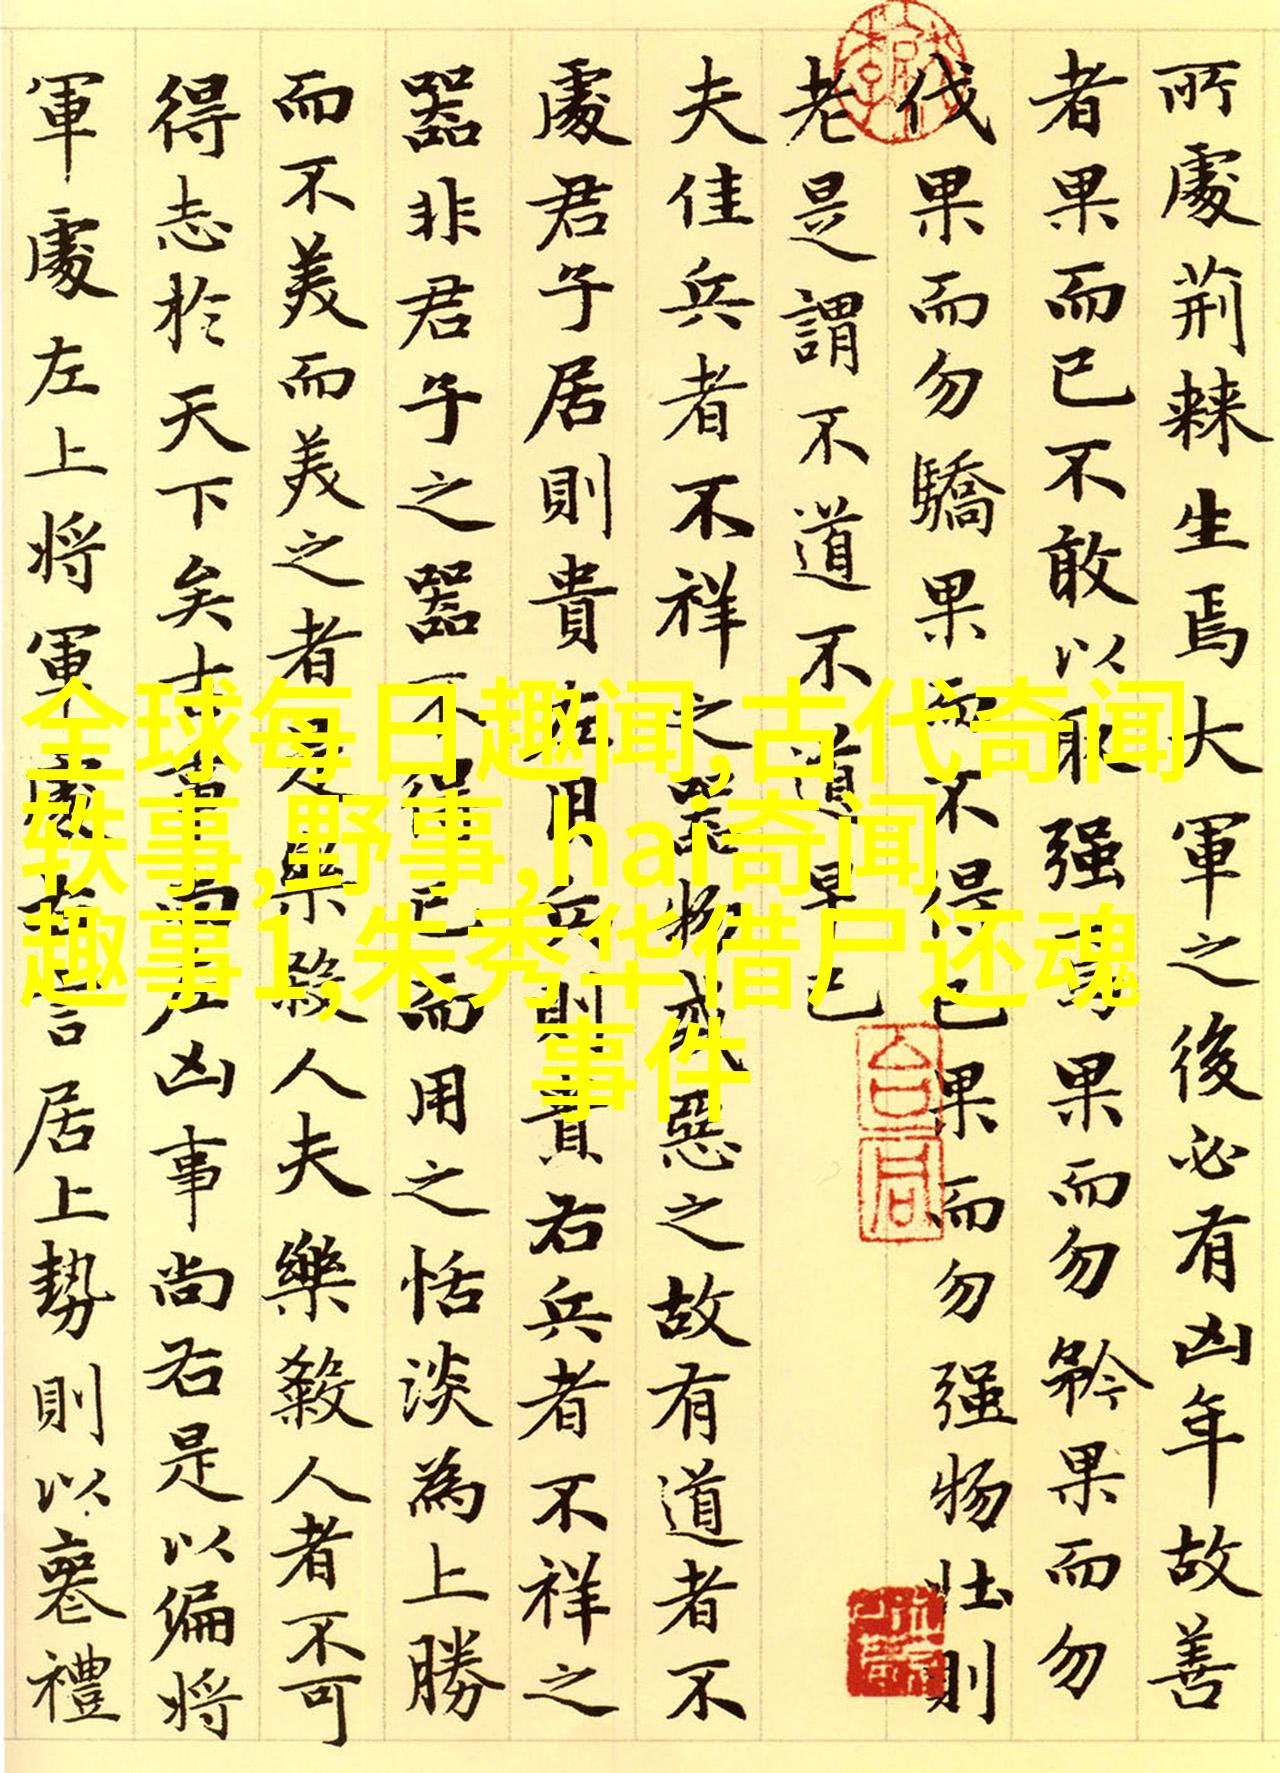 所處荊棘生焉大軍之後必有凶年故善
者果而已不敢以取强焉果而勿矜果而勿
伐果而勿驕果而不得已果而勿强物壮則
老是謂不道不道早已
夫佳兵者不祥之器物或惡之故有道者不
處君子居則貴左用兵則貴右兵者不祥之
器非君子之器不得已而用之恬淡為上勝
而不美而美之者是樂殺人夫樂殺人者不可
得志於天下矣吉事尚左凶事尚右是以偏將
軍處左上將軍處右言居上勢則以喪禮
全球每日趣闻,古代奇闻
轶事,野事,hai奇闻
趣事1,朱秀华借尸还魂
事件